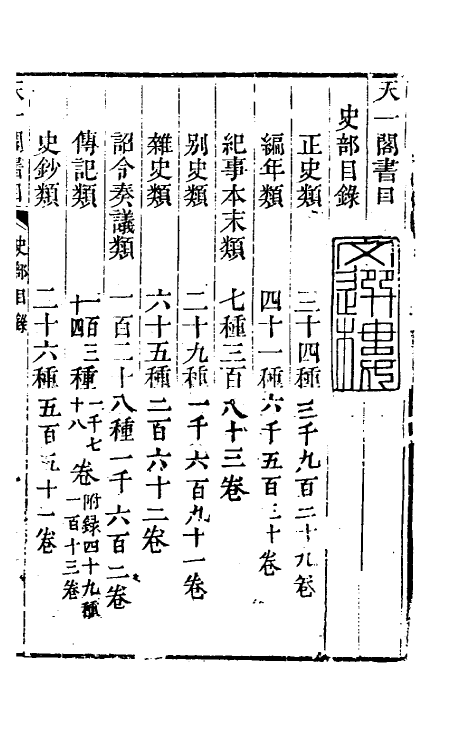 天一閣書目
史部目錄
文選樓
正史類 三十四種三千九百二十九卷
編年類 四十一種六千五百三十卷
紀事本末類 七種三百八十三卷
別史類 二十九種一千六百九十一卷
雜史類 六十五種二百六十二卷
詔令奏議類 一百二十八種一千六百二卷
傳記類 一百三十四種一千七十八卷附錄四十九種一百十三卷
史鈔類 二十六種五百五十一卷
天一閣書目 史部目錄